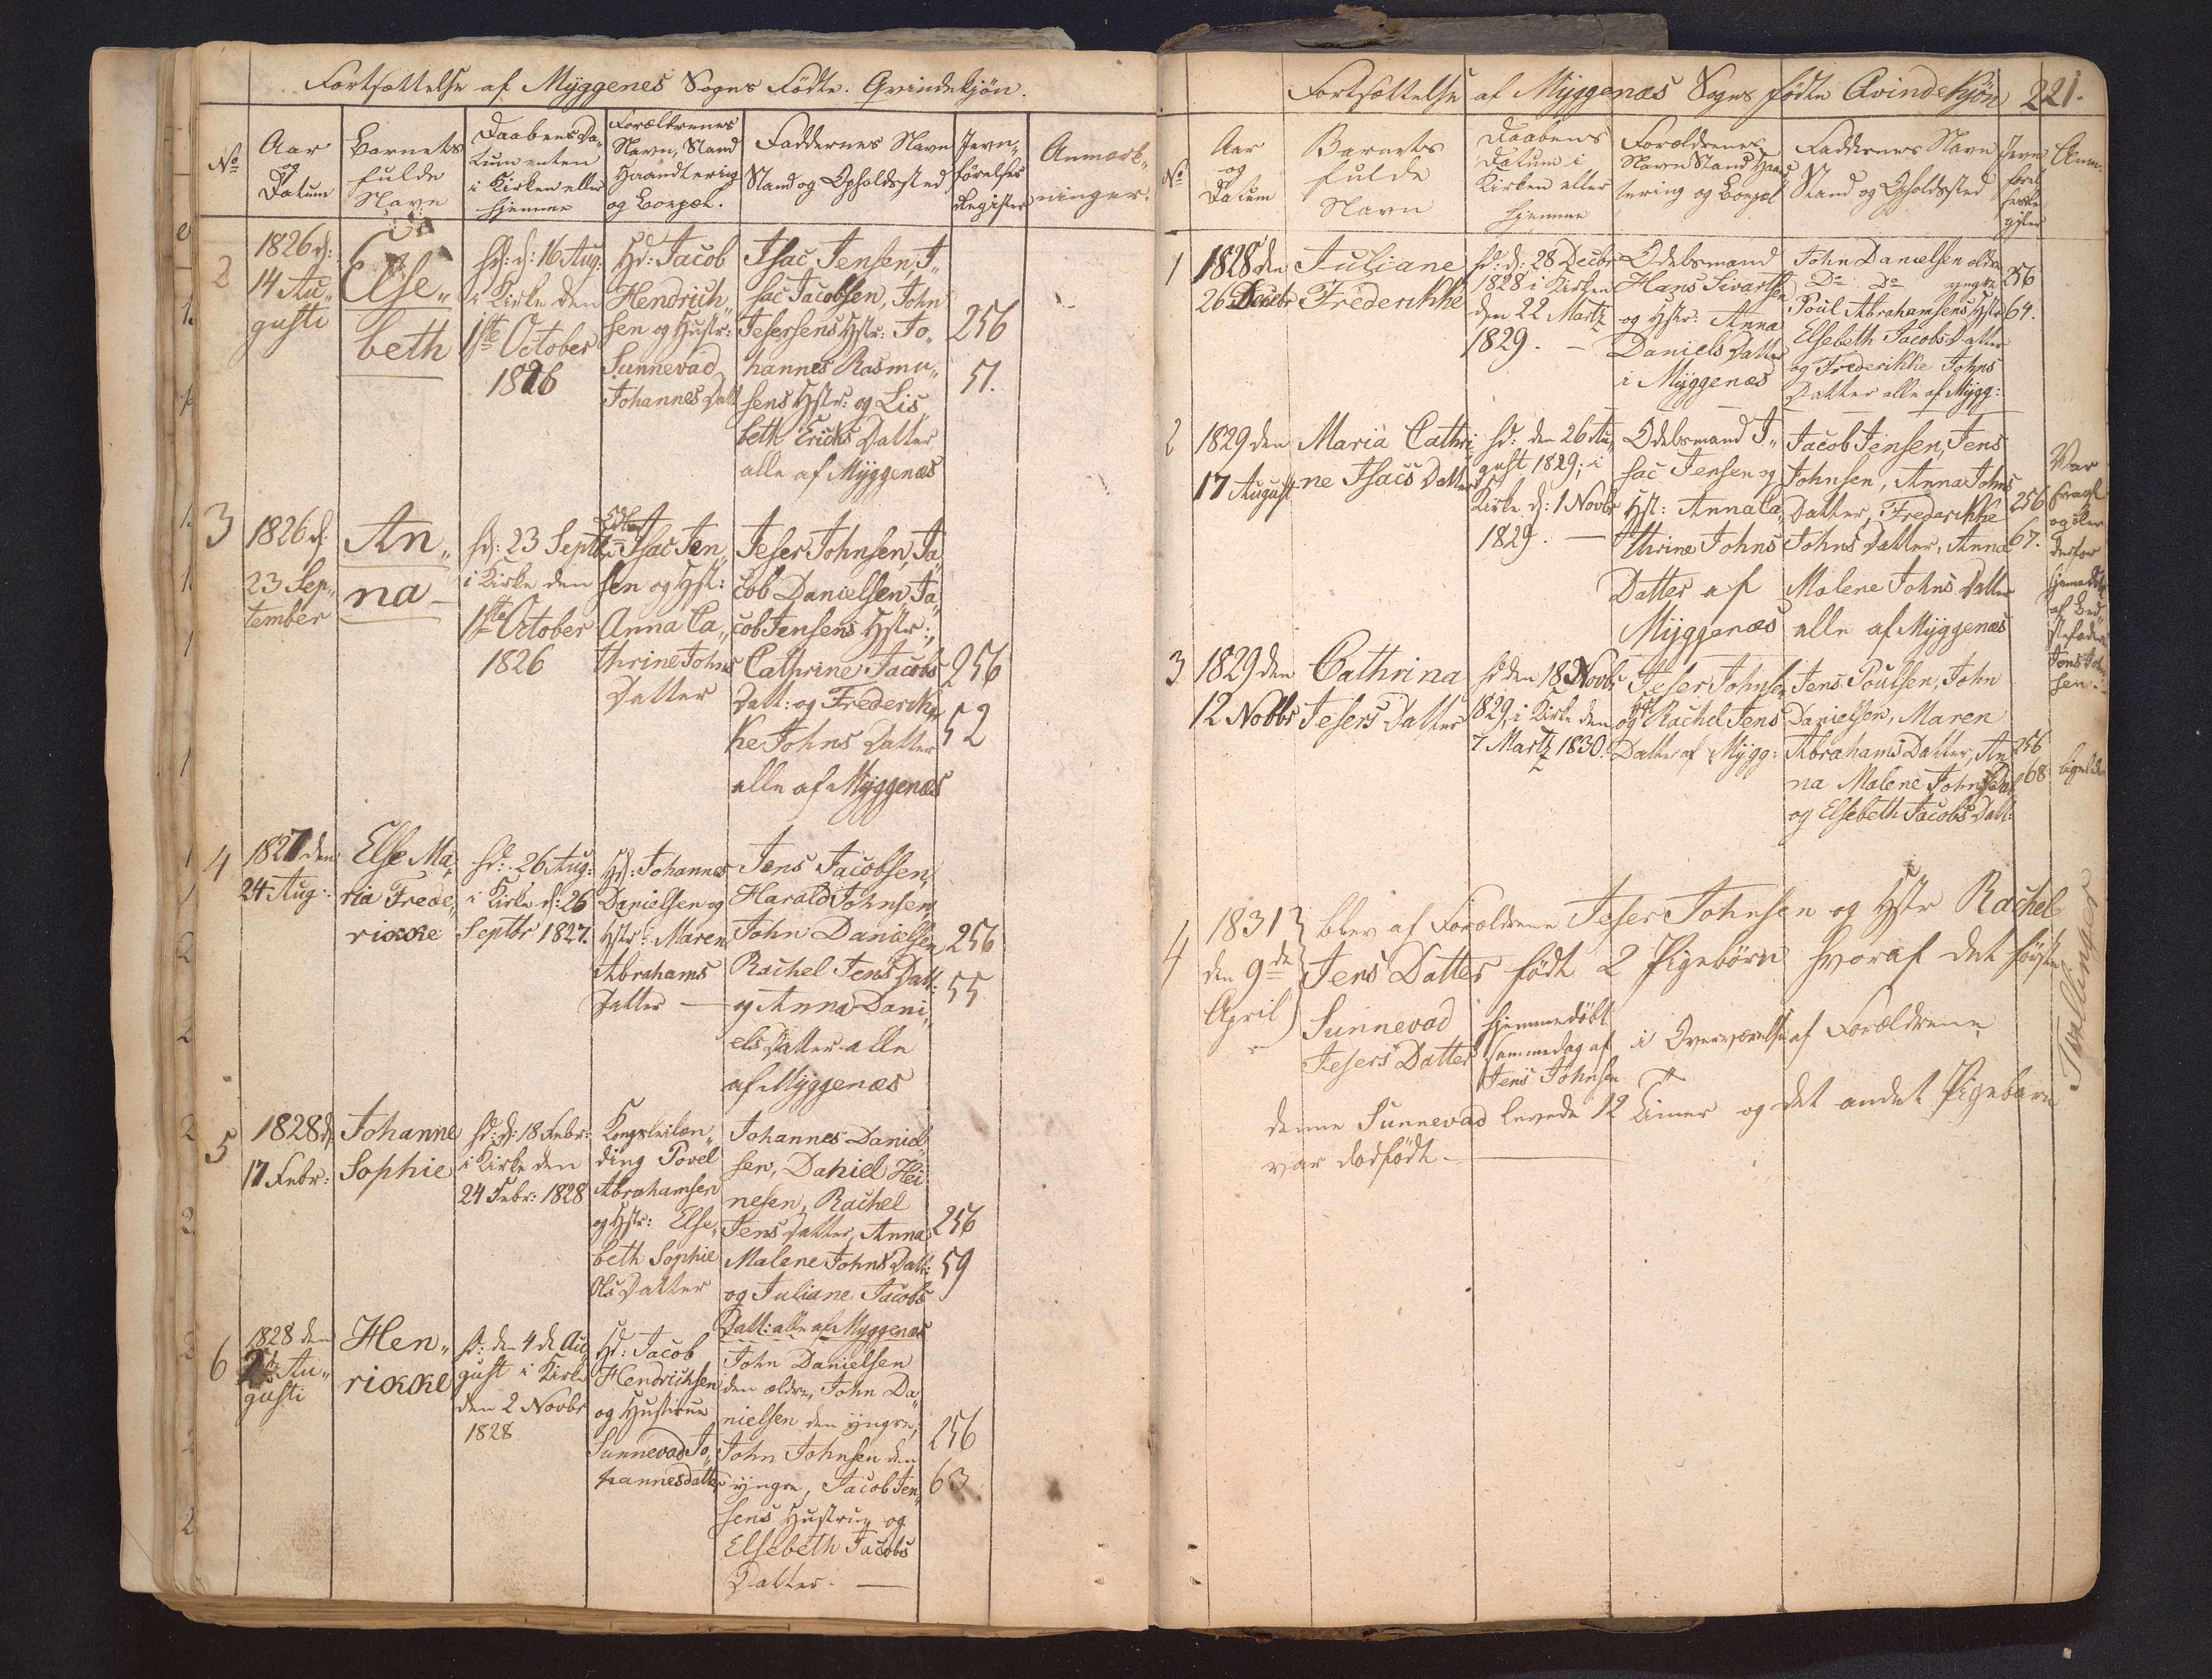 Fortsættelse af Myggenes Sogns Födte. Qvindekjön.
No
Aar
og
Datum
Barnets
fulde
Navn
Daabens Da„
tum enten
i Kirken eller
hjemme
Forældrenes
Navn, Stand
Haandtering
og Bopæl.
Faddernes Navn
Stand og Opholdssted
Jevn„
förelses
Register
Anmærk„
ninger.
2
1826 d:
14 Au„
gusti
Else„
beth
hd: d: 16 Aug:
i Kirke den
1ste October
1826
Hd: Jacob
Hendrich„
sen og Hustr:
Sunnevad
Johannes Datt
Isac Jensen, I„
sac Jacobsen, John
Jesersens Hstr: Jo„
hannes Rasmu„
sens Hstr: og Lis„
beth Erichs Datter
alle af Myggenæs
256
51.
3
1826 d:
23 Sep„
tember
An„
na
hd: 23 Septbr
i Kirke den
1ste October
1826
Isac Jen„
sen og Hst:
Anna Ca„
thrine Johns
Datter
Jeser Johnsen, Ja„
cob Danielsen, Ja„
cob Jensens Hstr:,
Cathrine Jacobs
Datt: og Frederik„
ke Johns Datter
alle af Myggenæs
256
52
4
1827 den
24 Aug:
Else Ma„
ria Frede„
rikke
hd: 26 Aug:
i Kirke d: 26
Septbr 1827.
Hd: Johannes
Danielsen og
Hstr: Maren
Abrahams
Datter —
Jens Jacobsen,
Harald Johnsen,
John Danielsen
Rachel Jens Datt:
og Anna Dani„
els Datter alle
af Myggenæs
256
55
5
1828 d
17 Febr:
Johanne
Sophie
hd: d: 18 Febr:
i Kirke den
24 Febr: 1828
Kongsleilæn„
ding Povel
Abrahamsen
og Hstr: Else„
beth Sophie
Ols Datter
Johannes Daniel
sen, Daniel Hei„
nesen, Rachel
Jens Datter, Anna
Malene Johns Datt:
og Juliane Jacobs
Datt: alle af Myggenæs
256
59
6
1828 den
2de Au„
gusti
Hen„
rikke
hd: den 4 de Au„
gust i Kirke
den 2 Novbr
1828
Hd: Jacob
Hendrichsen
og Hustrue
Sunnevad Jo„
hannesdatter
John Danielsen
den ældre, John Da„
nielsen den yngre,
John Johnsen den
yngre, Jacob Jen„
sens Hustru og
Elsebeth Jacobs
Datter. —
256
63
Fortsættelse af Myggenæs Sogns födte Qvindekjön
221.
No
Aar
og
Datum
Barnets
fulde
Navn
Daabens
Datum i
Kirken eller
hjemme
Forældrenes
Navn Stand Haand
tering og Bopæl
Faddernes Navn
Stand og Opholdssted
Anm:
1
1828 den
26 Decbr
Juliane
Frederikke
hd: d: 28 Decbr
1828 i Kirken
den 22 Martz
1829. —
Odelsmand
Hans Sivartsen
og Hstr: Anna
Daniels Datter
i Myggenæs
John Danielsen ældre
Do Do yngre
Poul Abrahamsens Hstr
Elsebeth Jacobs Datter
og Frederikke Johns
Datter alle af Mygg:
256
64.
2
1829 den
17 August
Maria Cathri
ne Isacs Datter
hd: den 26 Au„
gust 1829; i
Kirke d: 1 Novbr
1829. —
Odelsmand I„
sac Jensen og
Hst: Anna Ca„
thrine Johns
Datter af
Myggenæs
Jacob Jensen, Jens
Johnsen, Anna Johns
Datter, Frederikke
Johns Datter, Anna
Malene Johns Datter
alle af Myggenæs
256
67.
Var
svagt
og blev
derfor
hjemedöbt
af Bed„
stefader
Jens John
sen.
3
1829 den
12 Novbr
Cathrina
Jesers Datter
hd den 18 Novbr
1829, i Kirke den
7 Martz 1830.
Jeser Johnsen
og Hst Rachel Jens
Datter af Mygg:
Jens Poulsen, John
Danielsen, Maren
Abrahams Datter, An
na Malene Johns Dat
og Elsebeth Jacobs Datt:
256
68
ligeledes
4
1831
den 9de
April
blev af Forældrene Jeser Johnsen og Hstr Rachel
Jens Datter födt 2 Pigebörn hvoraf det förste
Sunnevad
Jesers Datter
hjemmedöbt
sammedag af
Jens Johnsen
i Overværelse af Forældrene
denne Sunnevad levede 12 Timer og det andet Pigebarn
var dödfödt.
Tvillinger